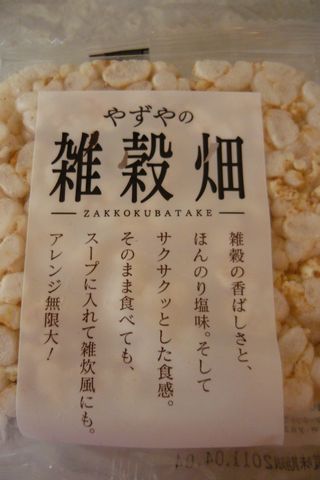 やずやの
雑穀畑
ZAKKOKUBATAKE
雑穀の香ばしさと、
ほんのり塩味。そして
サクサクッとした食感。
そのまま食べても、
スープに入れて雑炊風にも。
アレンジ無限大!
味期限2011.04.04